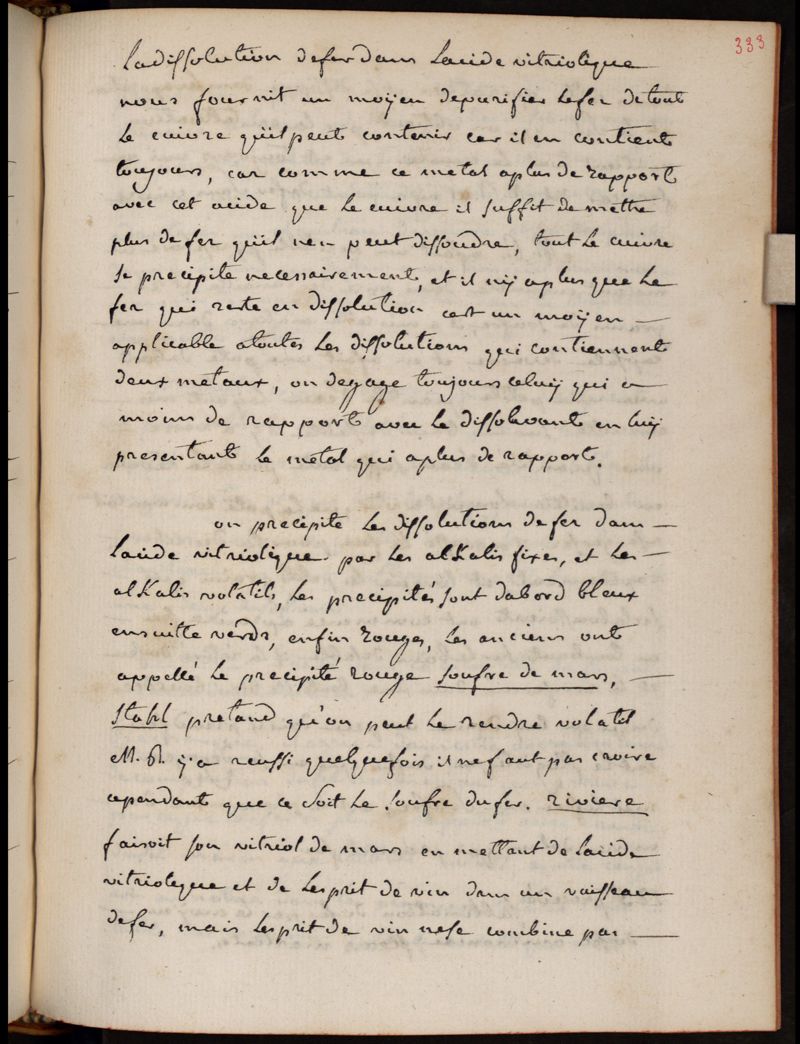 333
La dissolution de fer dans Lacide vitriolique
nous fournit un moÿen depurifier Lefer detout
Le cuivre qüil peut contenir car il en contient
toujours, car comme ce metal aplus de rapport
avec cet acide que Le cuivre il suffit de mettre
plus de fer qüil nen peut dissoudre, tout Le cuivre
se precipite necessairement, et il nÿ aplus que Le
fer qui reste en dissolution cest un moÿen —
applicable atoutes Les dissolutions qui contiennent
deux metaux, on degage toujours celuÿ qui a
moins de rapport avec Le dissolvant en luÿ
presentant Le metal qui aplus de rapport.
on precipite Les dissolutions de fer dans —
Lacide vitriolique par Les alKalis fixes, et Les —
alKalis volatils, Les precipités sont dabord bleux
ensuitte verds, enfin rouges, Les anciens ont
appellé Le precipité rouge soufre de mars, —
Stahl pretand qu'on peut Le rendre volatil
M. R. ÿ a reussi quelquefois il ne faut pas croire
cependant que ce soit Le soufre du fer. riviere
faisoit son vitriol de mars en mettant de Lacide
vitriolique et de Lesprit de vin dans un vaisseau
de fer, mais Lesprit de vin nese combine pas —